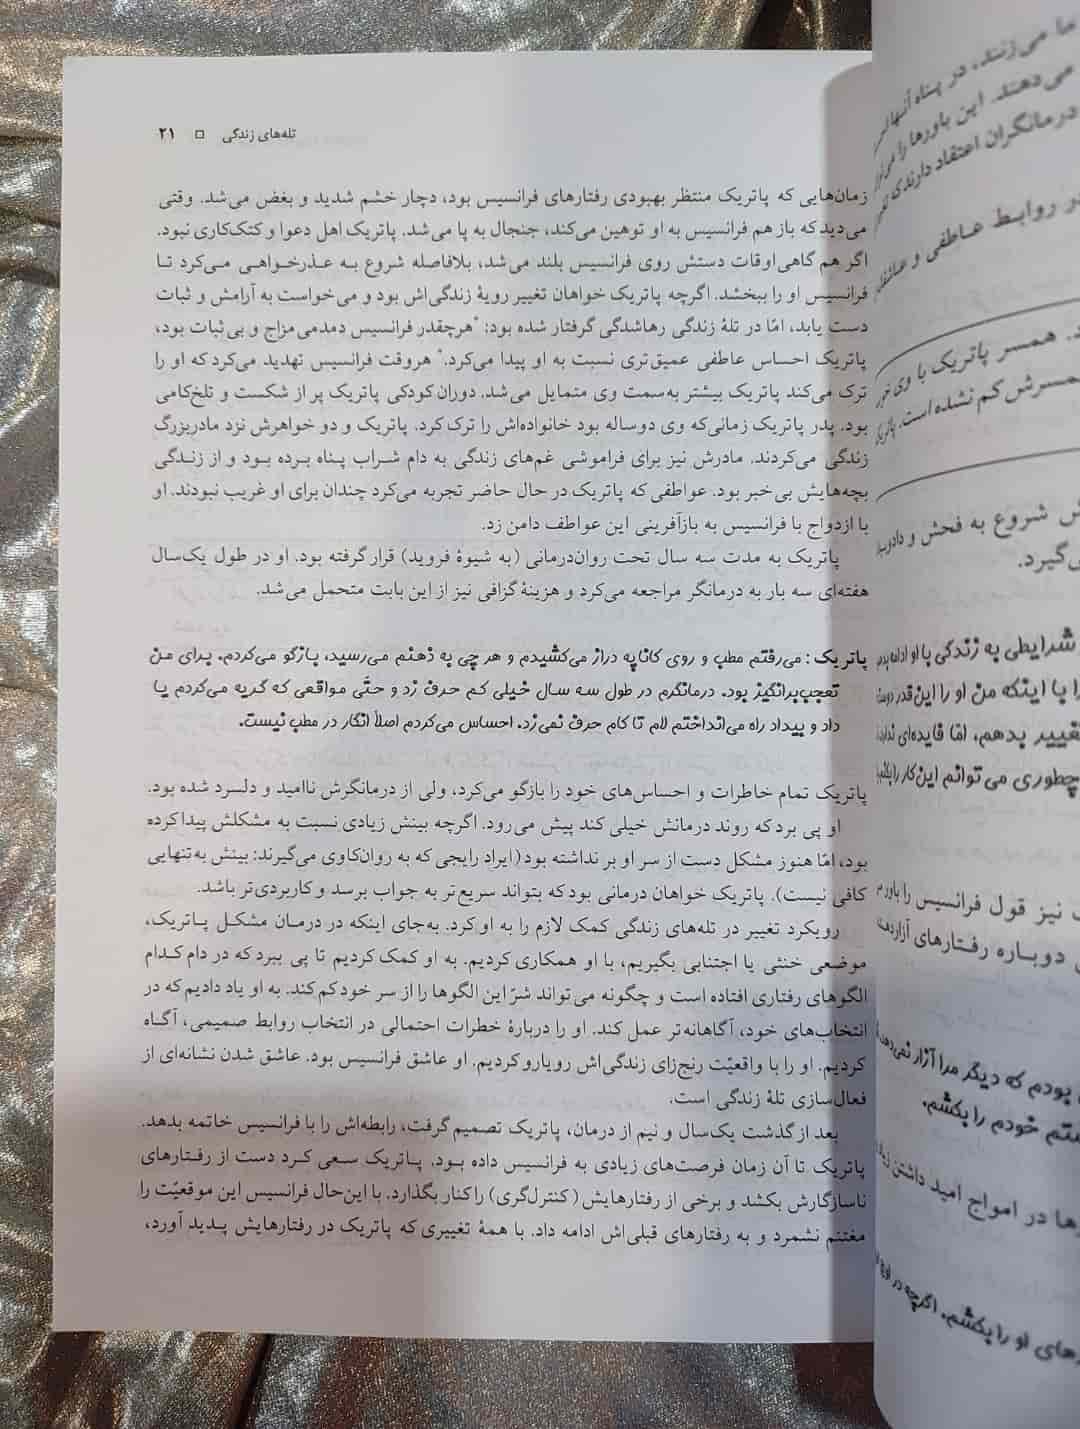 تله‌های زندگی □ ۲۱
زمان‌هایی که پاتریک منتظر بهبودی رفتارهای فرانسیس بود، دچار خشم شدید و بغض می‌شد. وقتی
می‌دید که باز هم فرانسیس به او توهین می‌کند، جنجال به پا می‌شد. پاتریک اهل دعوا و کتک‌کاری نبود.
اگر هم گاهی اوقات دستش روی فرانسیس بلند می‌شد، بلافاصله شروع به عذرخواهی می‌کرد تا
فرانسیس او را ببخشد. اگرچه پاتریک خواهان تغییر رویهٔ زندگی‌اش بود و می‌خواست به آرامش و ثبات
دست یابد، امّا در تلهٔ زندگی رهاشدگی گرفتار شده بود: "هرچقدر فرانسیس دمدمی‌مزاج و بی‌ثبات بود،
پاتریک احساس عاطفی عمیق‌تری نسبت به او پیدا می‌کرد." هروقت فرانسیس تهدید می‌کرد که او را
ترک می‌کند پاتریک بیشتر به‌سمت وی متمایل می‌شد. دوران کودکی پاتریک پر از شکست و تلخ‌کامی
بود. پدر پاتریک زمانی‌که وی دوساله بود خانواده‌اش را ترک کرد. پاتریک و دو خواهرش نزد مادربزرگ
زندگی می‌کردند. مادرش نیز برای فراموشی غم‌های زندگی به دام شراب پناه برده بود و از زندگی
بچه‌هایش بی‌خبر بود. عواطفی که پاتریک در حال حاضر تجربه می‌کرد چندان برای او غریب نبودند. او
با ازدواج با فرانسیس به بازآفرینی این عواطف دامن زد.
پاتریک به مدت سه سال تحت روان‌درمانی (به شیوهٔ فروید) قرار گرفته بود. او در طول یک‌سال
هفته‌ای سه بار به درمانگر مراجعه می‌کرد و هزینهٔ گزافی نیز از این بابت متحمل می‌شد.
پاتریک: می‌رفتم مطب و روی کاناپه دراز می‌کشیدم و هر چی به ذهنم می‌رسید، بازگو می‌کردم. برای من
تعجب‌برانگیز بود. درمانگرم در طول سه سال خیلی کم حرف زد و حتّی مواقعی که گریه می‌کردم یا
داد و بیداد راه می‌انداختم لام تا کام حرف نمی‌زد. احساس می‌کردم اصلاً انگار در مطب نیست.
پاتریک تمام خاطرات و احساس‌های خود را بازگو می‌کرد، ولی از درمانگرش ناامید و دلسرد شده بود.
او پی برد که روند درمانش خیلی کند پیش می‌رود. اگرچه بینش زیادی نسبت به مشکلش پیدا کرده
بود، امّا هنوز مشکل دست از سر او بر نداشته بود (ایراد رایجی که به روان‌کاوی می‌گیرند: بینش به‌تنهایی
کافی نیست). پاتریک خواهان درمانی بود که بتواند سریع‌تر به جواب برسد و کاربردی‌تر باشد.
رویکرد تغییر در تله‌های زندگی کمک لازم را به او کرد. به‌جای اینکه در درمان مشکل پاتریک،
موضعی خنثی یا اجتنابی بگیریم، با او همکاری کردیم. به او کمک کردیم تا پی ببرد که در دام کدام
الگوهای رفتاری افتاده است و چگونه می‌تواند شرّ این الگوها را از سر خود کم کند. به او یاد دادیم که در
انتخاب‌های خود، آگاهانه‌تر عمل کند. او را دربارهٔ خطرات احتمالی در انتخاب روابط صمیمی، آگاه
کردیم. او را با واقعیّت رنج‌زای زندگی‌اش رویارو کردیم. او عاشق فرانسیس بود. عاشق شدن نشانه‌ای از
فعال‌سازی تلهٔ زندگی است.
بعد از گذشت یک‌سال و نیم از درمان، پاتریک تصمیم گرفت، رابطه‌اش را با فرانسیس خاتمه بدهد.
پاتریک تا آن زمان فرصت‌های زیادی به فرانسیس داده بود. پاتریک سعی کرد دست از رفتارهای
ناسازگارش بکشد و برخی از رفتارهایش (کنترل‌گری) را کنار بگذارد. با این‌حال فرانسیس این موقعیّت را
مغتنم نشمرد و به رفتارهای قبلی‌اش ادامه داد. با همهٔ تغییری که پاتریک در رفتارهایش پدید آورد،
ما می‌زنند، در پناه آنها
می‌دهند. این باورها را
درمانگران اعتقاد دارند
روابط عاطفی و
همسر پاتریک با وی
کم نشده است. پاتریک
شروع به فحش و
شرایطی به زندگی با او
با اینکه من او را این‌قدر
بدهم، امّا فایده‌ای
چطوری می‌توانم این کار را
نیز قول فرانسیس را باور
دوباره رفتارهای
بودم که دیگر مرا آزار
خودم را بکشم.
در امواج امید داشتن
او را بکشم. اگرچه در